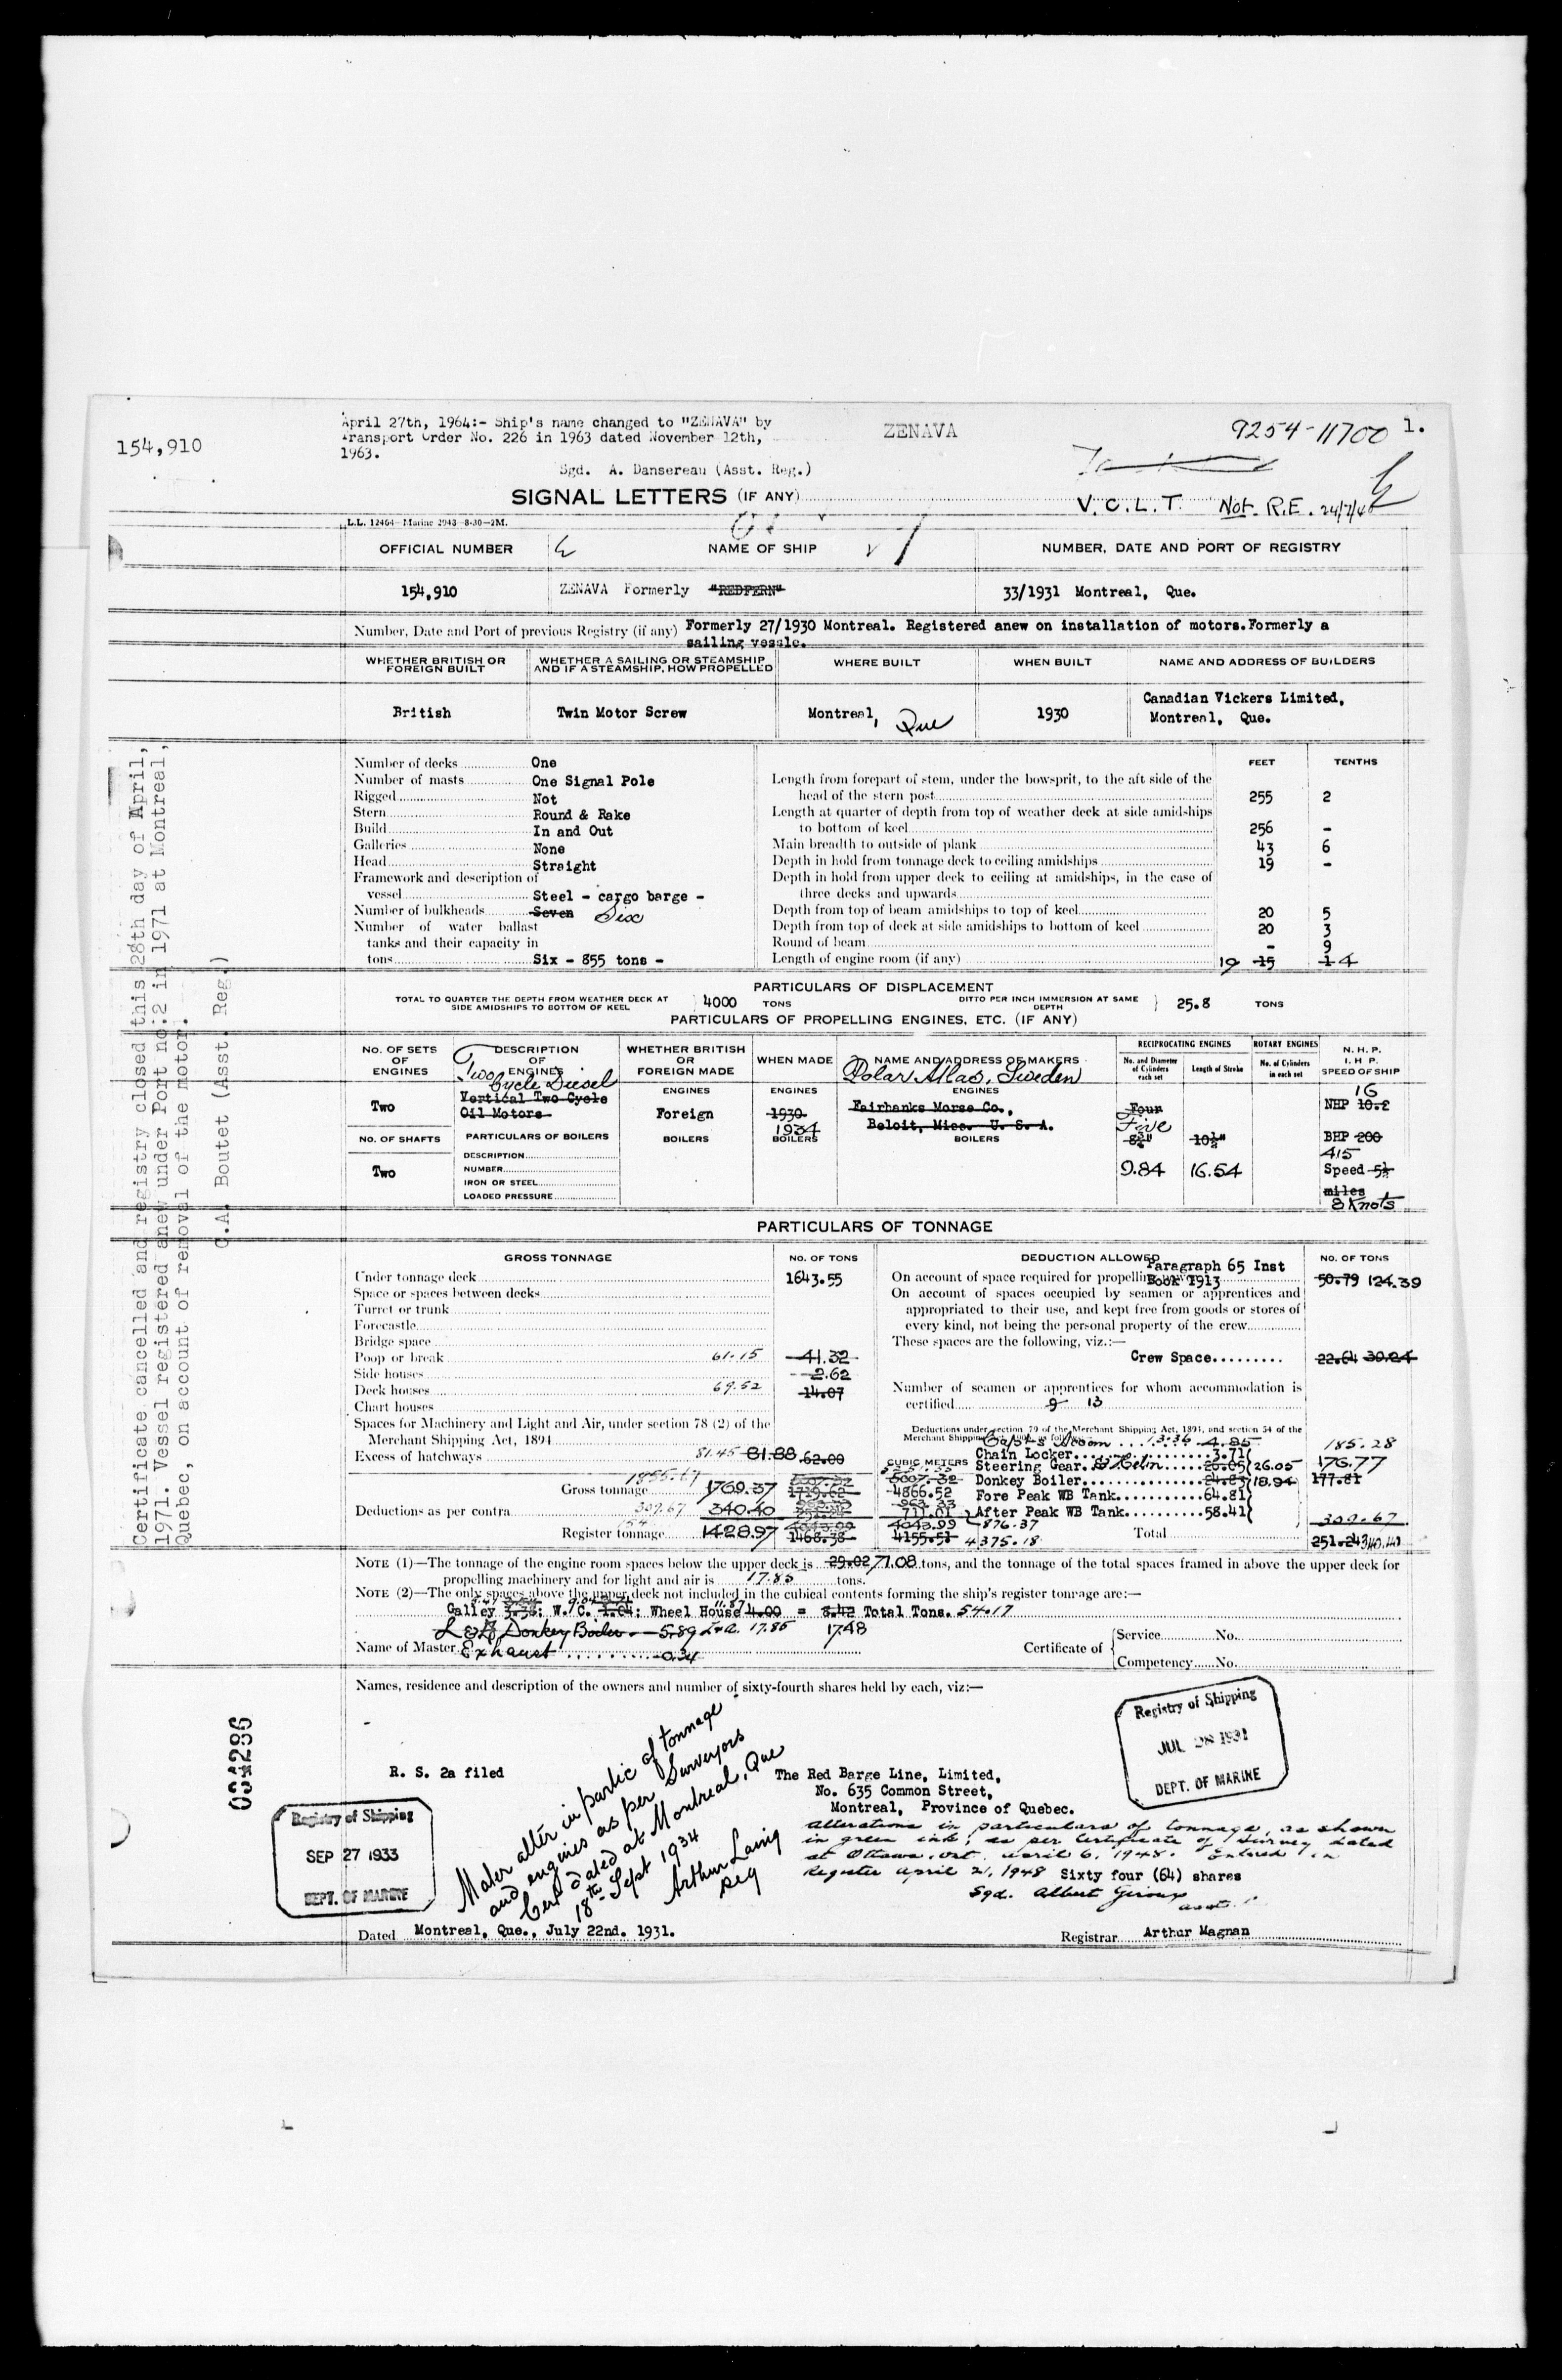 154,910
April 27th, 1964:- Ship's name changed to "ZENAVA" by
Transport Order No. 226 in 1963 dated November 12th,
1963.
Sgd. A. Dansereau (Asst. Reg.)
ZENAVA
9254-11700 1.
SIGNAL LETTERS (IF ANY)
V.C.L.T. Not. R.E. 24/7/4
L.L. 12464—Marine 2943—8-30—2M.
OFFICIAL NUMBER
NAME OF SHIP
NUMBER, DATE AND PORT OF REGISTRY
154,910
ZENAVA Formerly "REDFERN"
33/1931 Montreal, Que.
Number, Date and Port of previous Registry (if any) Formerly 27/1930 Montreal. Registered anew on installation of motors.Formerly a
sailing vessle.
WHETHER BRITISH OR FOREIGN BUILT
WHETHER A SAILING OR STEAMSHIP AND IF A STEAMSHIP, HOW PROPELLED
WHERE BUILT
WHEN BUILT
NAME AND ADDRESS OF BUILDERS
British
Twin Motor Screw
Montreal, Que
1930
Canadian Vickers Limited,
Montreal, Que.
Number of decks One
Number of masts One Signal Pole
Rigged Not
Stern Round & Rake
Build In and Out
Galleries None
Head Straight
Framework and description of
vessel Steel - cargo barge -
Number of bulkheads Seven Six
Number of water ballast
tanks and their capacity in
tons Six - 855 tons -
FEET TENTHS
Length from forepart of stem, under the bowsprit, to the aft side of the
head of the stern post 255 2
Length at quarter of depth from top of weather deck at side amidships
to bottom of keel 256 -
Main breadth to outside of plank 43 6
Depth in hold from tonnage deck to ceiling amidships 19 -
Depth in hold from upper deck to ceiling at amidships, in the case of
three decks and upwards
Depth from top of beam amidships to top of keel 20 5
Depth from top of deck at side amidships to bottom of keel 20 3
Round of beam - 9
Length of engine room (if any) 19 15 1 4
PARTICULARS OF DISPLACEMENT
TOTAL TO QUARTER THE DEPTH FROM WEATHER DECK AT SIDE AMIDSHIPS TO BOTTOM OF KEEL 4000 TONS
DITTO PER INCH IMMERSION AT SAME DEPTH 25.8 TONS
PARTICULARS OF PROPELLING ENGINES, ETC. (IF ANY)
NO. OF SETS OF ENGINES
DESCRIPTION OF ENGINES
WHETHER BRITISH OR FOREIGN MADE
WHEN MADE
NAME AND ADDRESS OF MAKERS
RECIPROCATING ENGINES
ROTARY ENGINES
No. and Diameter of Cylinders each set
Length of Stroke
No. of Cylinders in each set
N. H. P.
I. H. P.
SPEED OF SHIP
Two
Two Cycle Diesel
Vertical Two Cycle
Oil Motors
ENGINES
Foreign
BOILERS
ENGINES
1930
1934
BOILERS
Polar Atlas, Sweden
ENGINES
Fairbanks Morse Co.,
Beloit, Misc. U. S. A.
BOILERS
Four
Five
8¾"
10½"
9.84 16.54
16
NHP 10.2
BHP 200
415
Speed 5½
miles
8 Knots
NO. OF SHAFTS
Two
PARTICULARS OF BOILERS
DESCRIPTION
NUMBER
IRON OR STEEL
LOADED PRESSURE
PARTICULARS OF TONNAGE
GROSS TONNAGE
NO. OF TONS
Under tonnage deck 1643.55
Space or spaces between decks
Turret or trunk
Forecastle
Bridge space
Poop or break 61.15 41.32
Side houses 2.62
Deck houses 69.52 14.07
Chart houses
Spaces for Machinery and Light and Air, under section 78 (2) of the
Merchant Shipping Act, 1894
Excess of hatchways 81.45 81.88 62.00
Gross tonnage 1855.67 1769.37 1719.62
Deductions as per contra 309.67 340.40
Register tonnage 1428.97 1468.38
DEDUCTION ALLOWED
NO. OF TONS
Paragraph 65 Inst
Book 1913
On account of space required for propelling power 50.79 124.39
On account of spaces occupied by seamen or apprentices and
appropriated to their use, and kept free from goods or stores of
every kind, not being the personal property of the crew
These spaces are the following, viz.:—
Crew Space......... 22.64 30.24
Number of seamen or apprentices for whom accommodation is
certified 9 13
Deductions under section 79 of the Merchant Shipping Act, 1894, and section 54 of the
Merchant Shipping Act, 1906, as follows
Capt's Room 13.36 4.85 185.28
Chain Locker 3.71 176.77
CUBIC METERS
Steering Gear 20.05 26.05 177.81
5007.32 Donkey Boiler 24.83 18.94
4866.52 Fore Peak WB Tank 64.81
963.33
711.01 After Peak WB Tank 58.41
4043.99 876.37
4155.51 4375.18
309.67
Total 251.24 340.40
NOTE (1)—The tonnage of the engine room spaces below the upper deck is 29.02 71.08 tons, and the tonnage of the total spaces framed in above the upper deck for
propelling machinery and for light and air is 17.85 tons.
NOTE (2)—The only spaces above the upper deck not included in the cubical contents forming the ship's register tonnage are:—
Galley W. C. Wheel House 11.87 4.00 = 8.42 Total Tons. 54.17
L & A Donkey Boiler - 5.89 L&A. 17.85 17.48
Name of Master Exhaust 0.34
Certificate of
Service No.
Competency No.
Names, residence and description of the owners and number of sixty-fourth shares held by each, viz:—
R. S. 2a filed
Mater alter in partic of tonnage
and engines as per Surveyors
Cert dated at Montreal, Que
18th Sept 1934
Arthur Laing
Reg
The Red Barge Line, Limited,
No. 635 Common Street,
Montreal, Province of Quebec.
Alterations in particulars of tonnage, as shown
in green ink, as per Certificate of Survey dated
at Ottawa, Ont. April 6, 1948. Entered in
Register April 21, 1948 Sixty four (64) shares
Sgd. Albert Giroux
Registry of Shipping
JUL 28 1931
DEPT. OF MARINE
Registry of Shipping
SEP 27 1933
DEPT. OF MARINE
Dated Montreal, Que., July 22nd. 1931.
Registrar Arthur Magnan
Certificate cancelled and registry closed this 28th day of April,
1971. Vessel registered anew under Port no:2 in 1971 at Montreal,
Quebec, on account of removal of the motor.
C.A. Boutet (Asst. Reg.)
034286